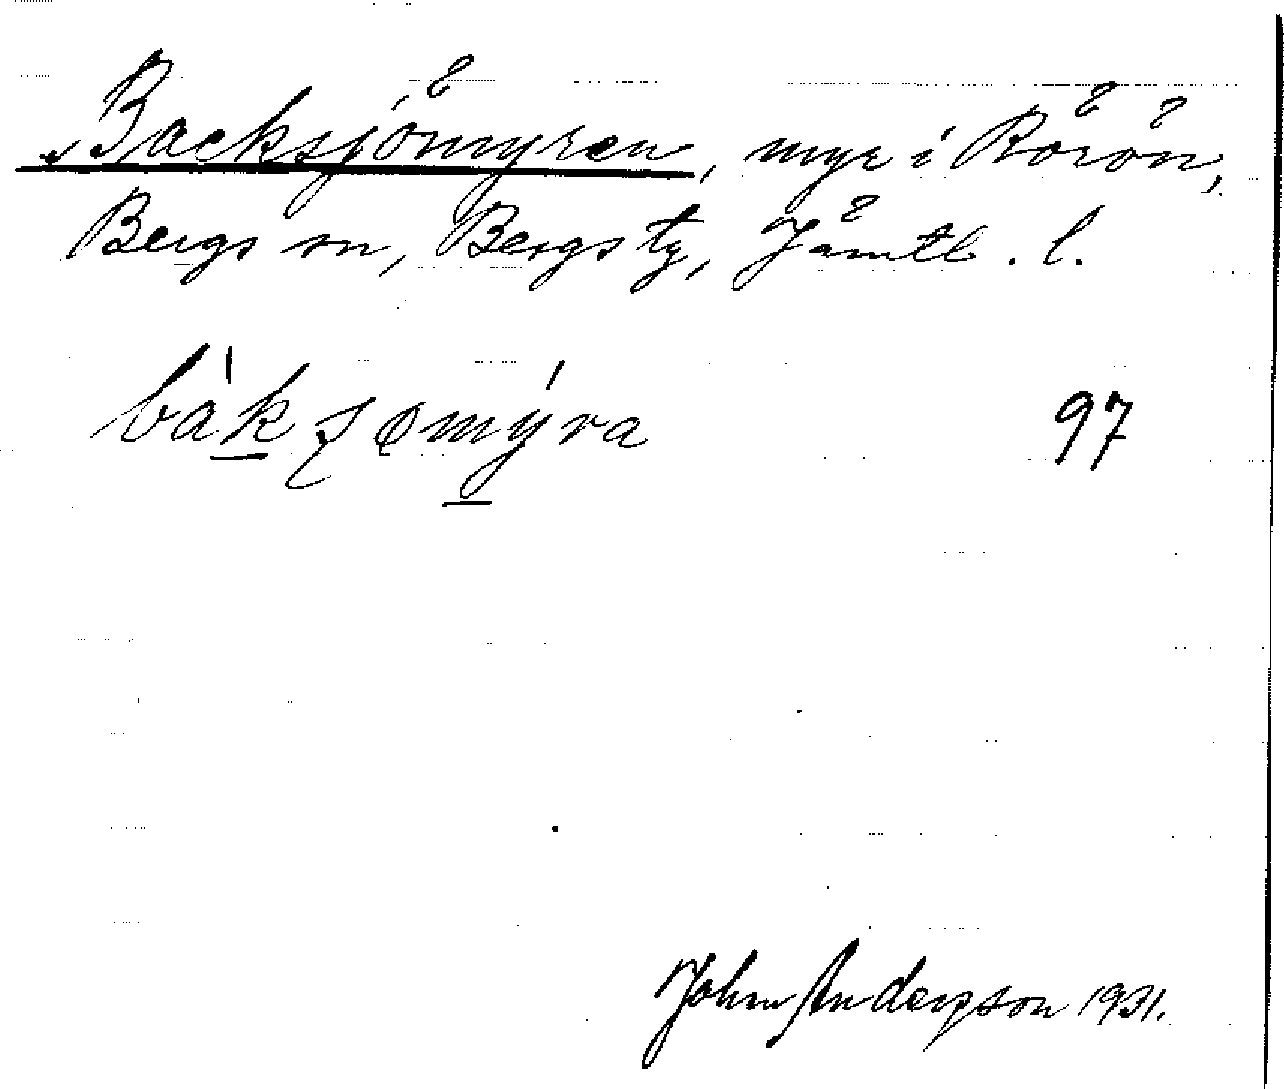 Backsjömyren, myr i Rörön,
Bergs sn, Bergs tg, Jämtl. l.
bàksømýra 97
John Andersson 1931.